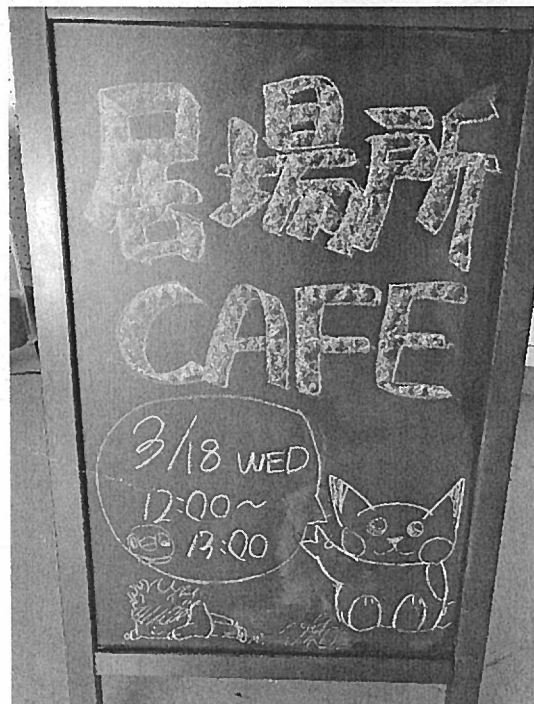 居場所
CAFE
3/18 WED
12:00～
13:00